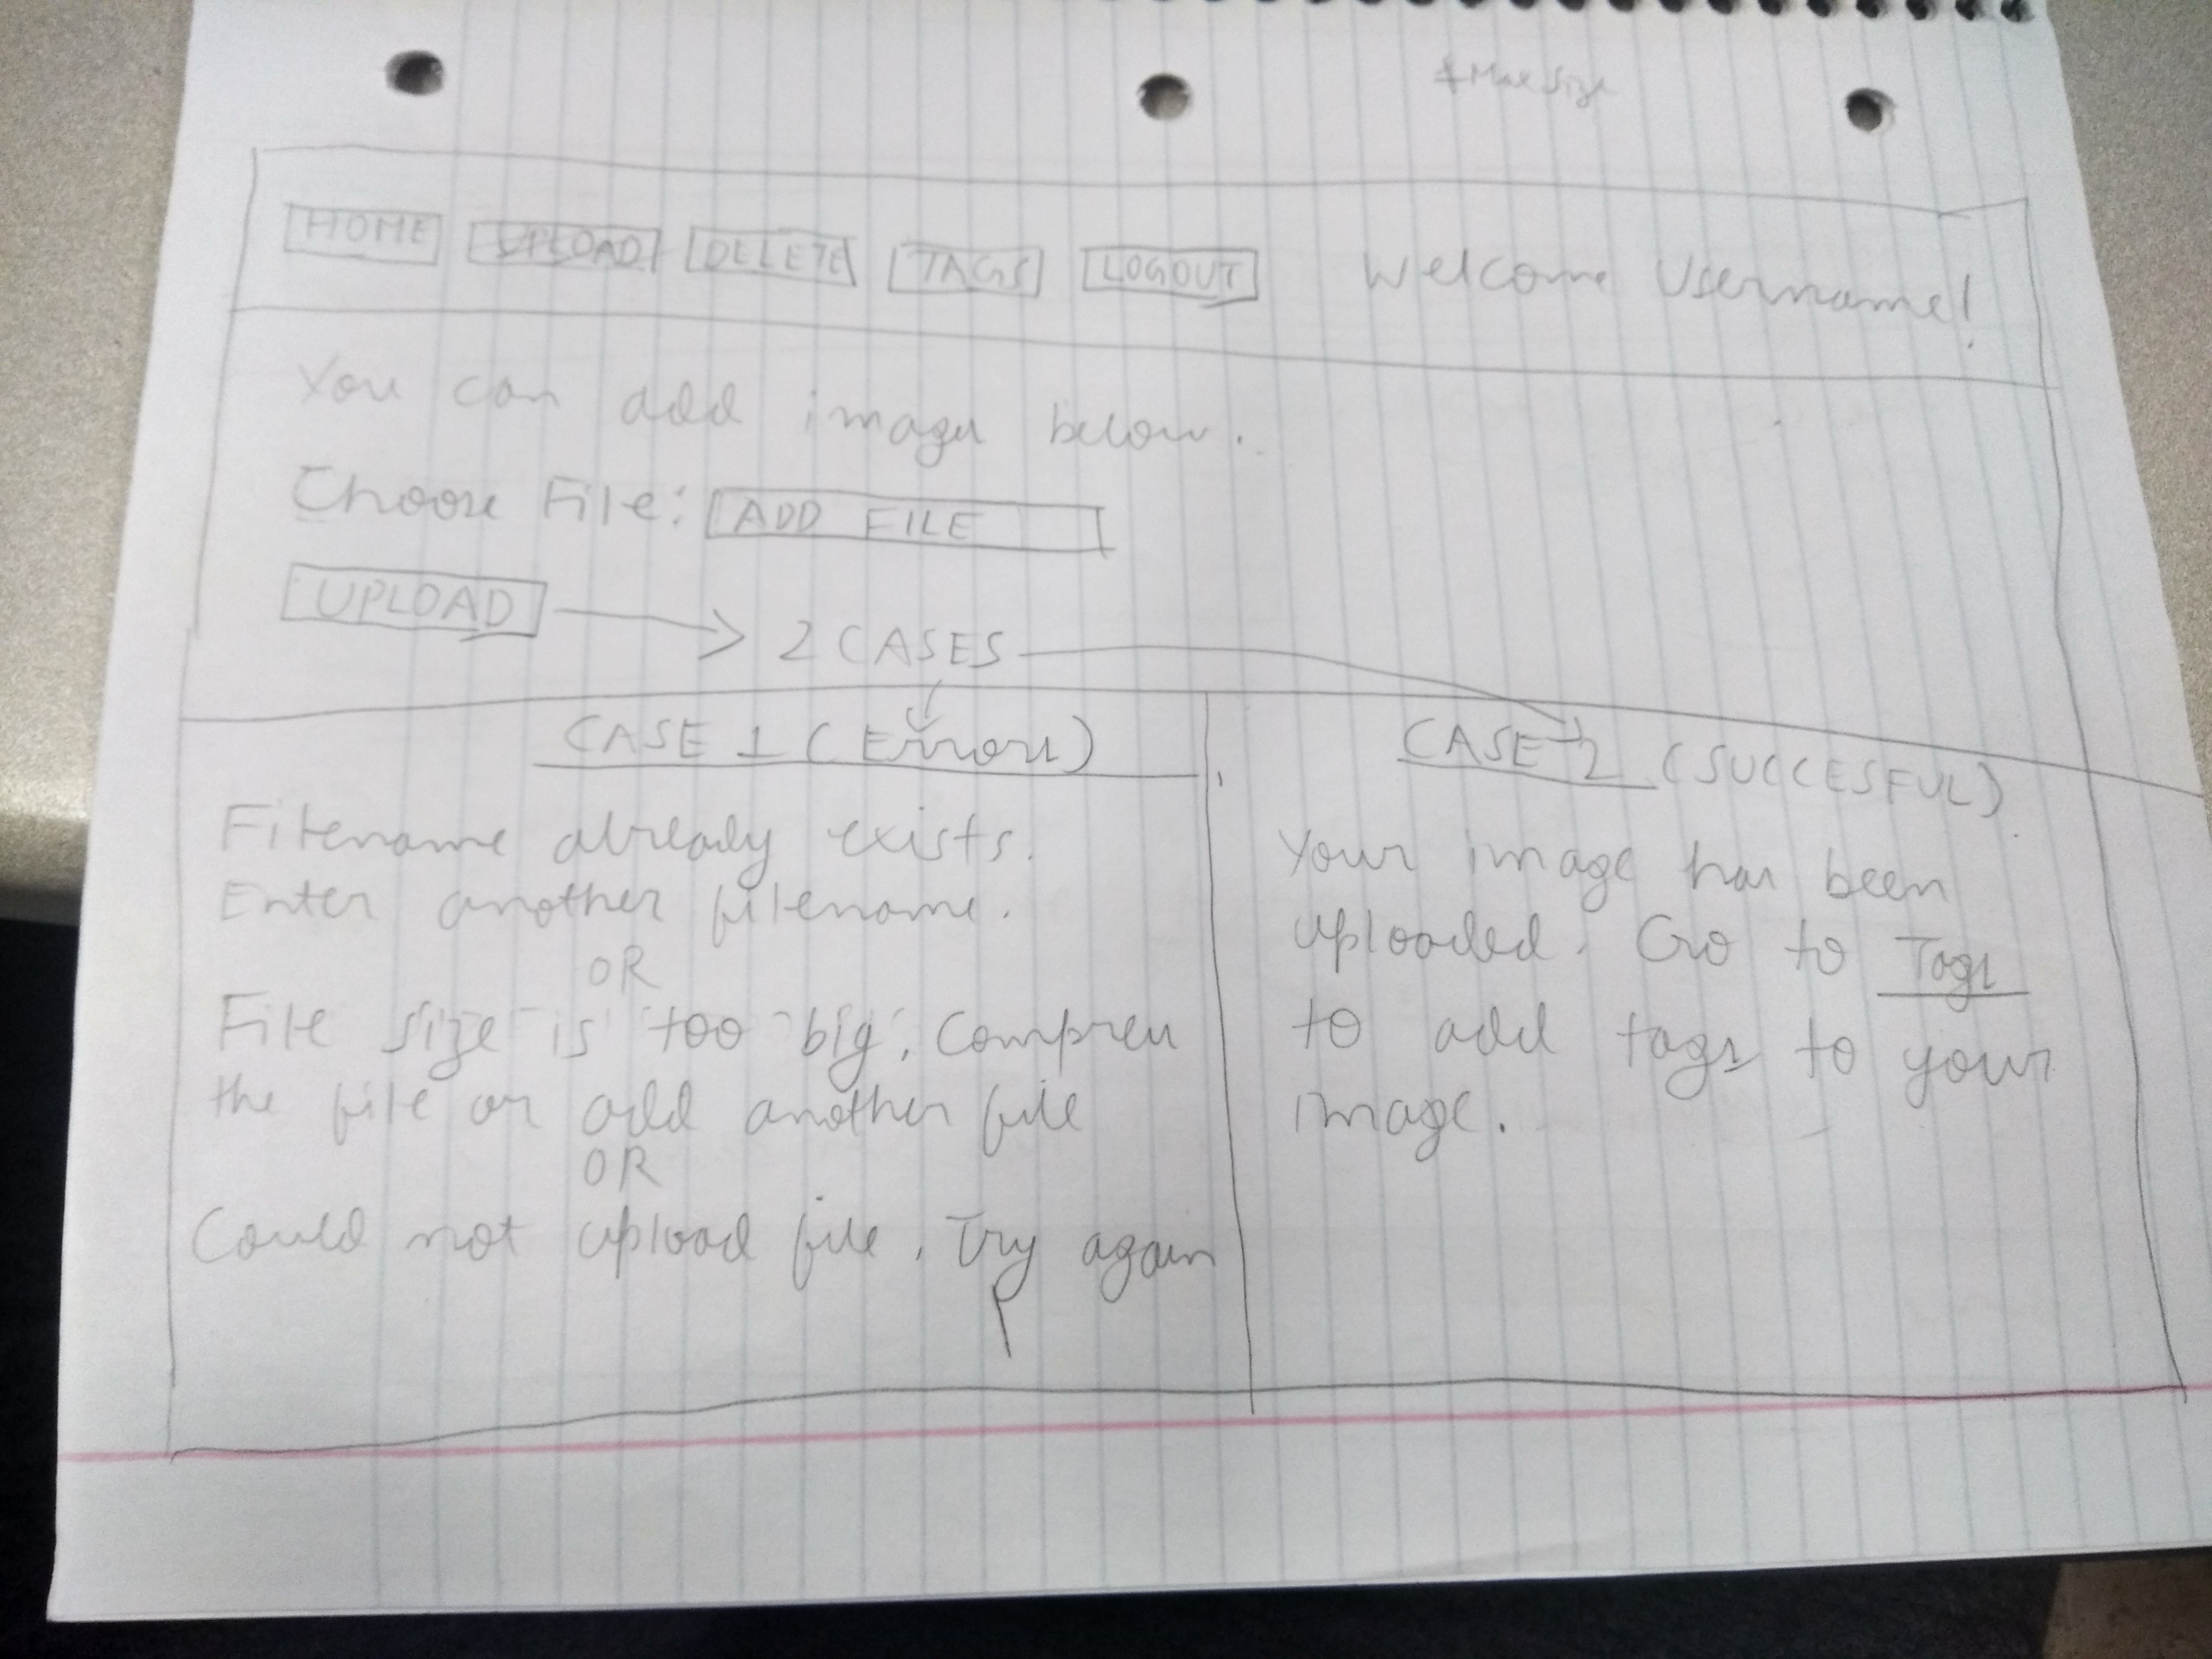 Max Size
HOME UPLOAD DELETE TAGS LOGOUT Welcome Username!
You can add images below.
Choose File: ADD FILE
UPLOAD → 2 CASES
CASE 1 (Errors)
Filename already exists.
Enter another filename.
OR
File size is too big. Compress
the file or add another file
OR
Could not upload file. Try again
CASE 2 (SUCCESFUL)
Your image has been
uploaded. Go to Tags
to add tags to your
image.